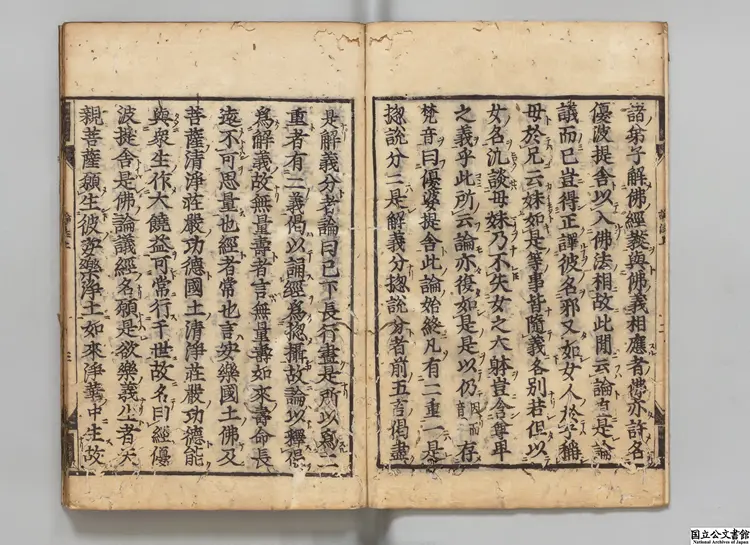 諸弟子解佛經教與佛義相應者佛亦許名
優波提舍以入佛法相故此間云論直是論
議而已豈得正譯彼名邪又如女人於子稱
母於兄云妹如是等事皆隨義各別若但以
女名汎談母妹乃不失女之大躰豈含尊卑
之義乎此所云論亦復如是是以仍因而存
梵音曰優婆提舍此論始終凡有二重一是
捴說分二是解義分捴說分者前五言偈盡
是解義分者論曰已下長行盡是所以爲二
重者有二義偈以誦經爲捴攝故論以釋偈
爲解義故無量壽者言無量壽如來壽命長
遠不可思量也經者常也言安樂國土佛及
菩薩清淨莊嚴功德國土清淨莊嚴功德能
與衆生作大饒益可常行于世故名曰經優
波提舍是佛論議經名願是欲樂義生者天
親菩薩願生彼安樂淨土如來淨華中生故
国立公文書館
National Archives of Japan